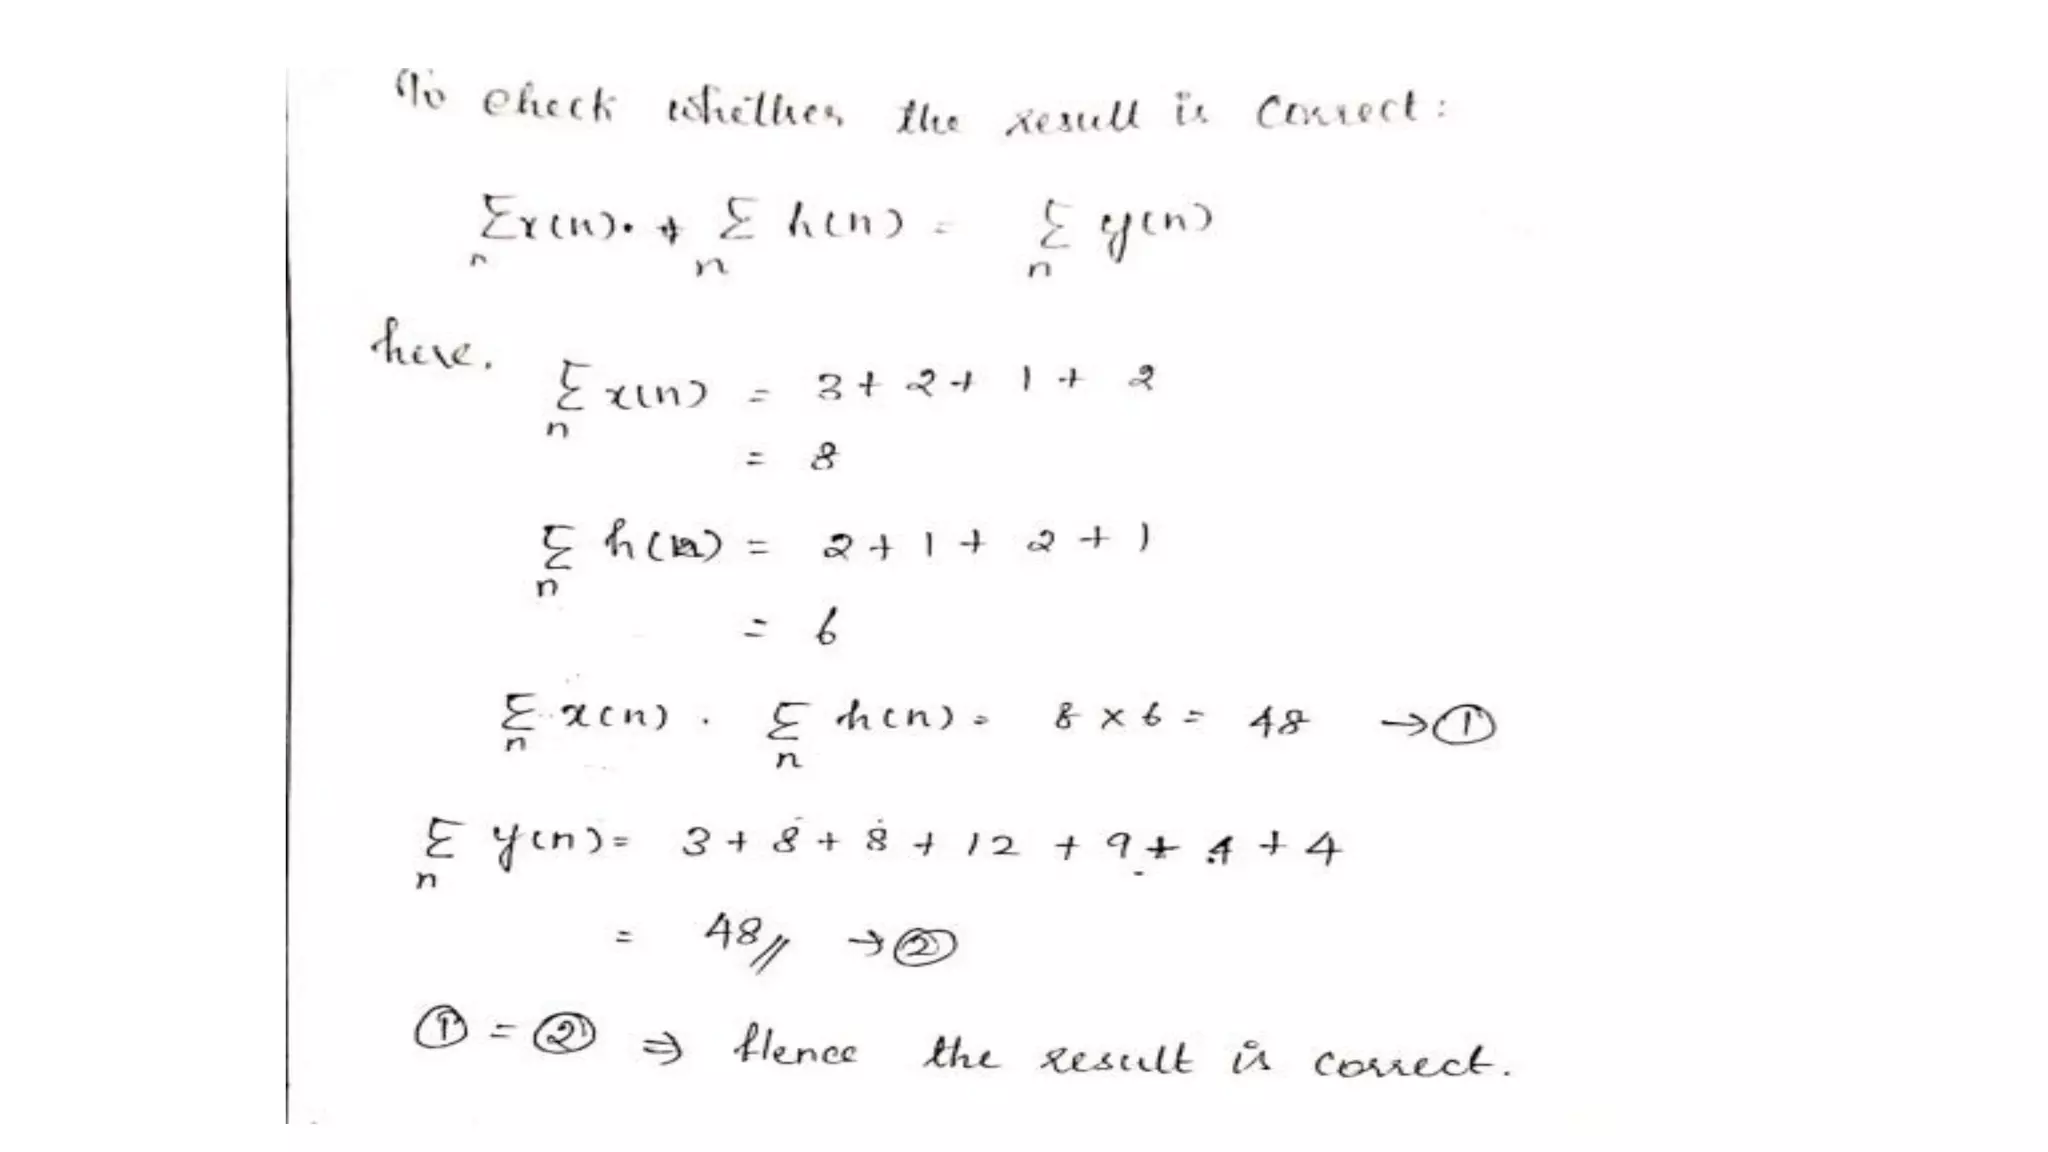 To check whether the result is correct:
Σ x(n). * Σ h(n) = Σ y(n)
n n n
here, Σ x(n) = 3 + 2 + 1 + 2
n
= 8
Σ h(n) = 2 + 1 + 2 + 1
n
= 6
Σ x(n) . Σ h(n) = 8 × 6 = 48 → ①
n n
Σ y(n) = 3 + 8 + 8 + 12 + 9 + 4 + 4
n
= 48// → ②
① = ② ⇒ Hence the result is correct.